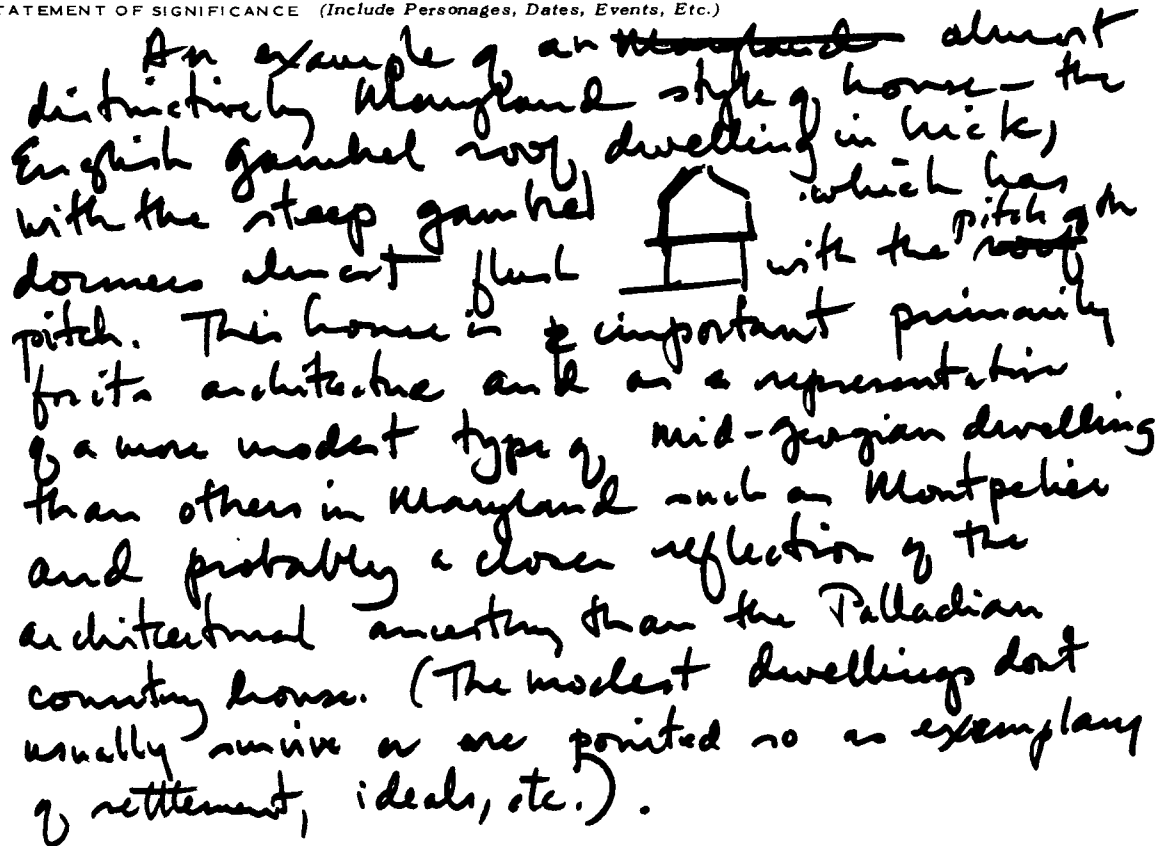 TATEMENT OF SIGNIFICANCE (Include Personages, Dates, Events, Etc.)
An example of an Maryland almost
distinctively Maryland style of house – the
English gambrel roof dwelling in brick,
with the steep gambrel which has
dormers almost flush with the roof pitch of the
pitch. This house is important primarily
for its architecture and as a representation
of a more modest type of mid-georgian dwelling
than others in Maryland such as Montpelier
and probably a closer reflection of the
architectural ancestry than the Palladian
country house. (The modest dwellings dont
usually survive or are pointed to as exemplary
of settlement, ideals, etc.).